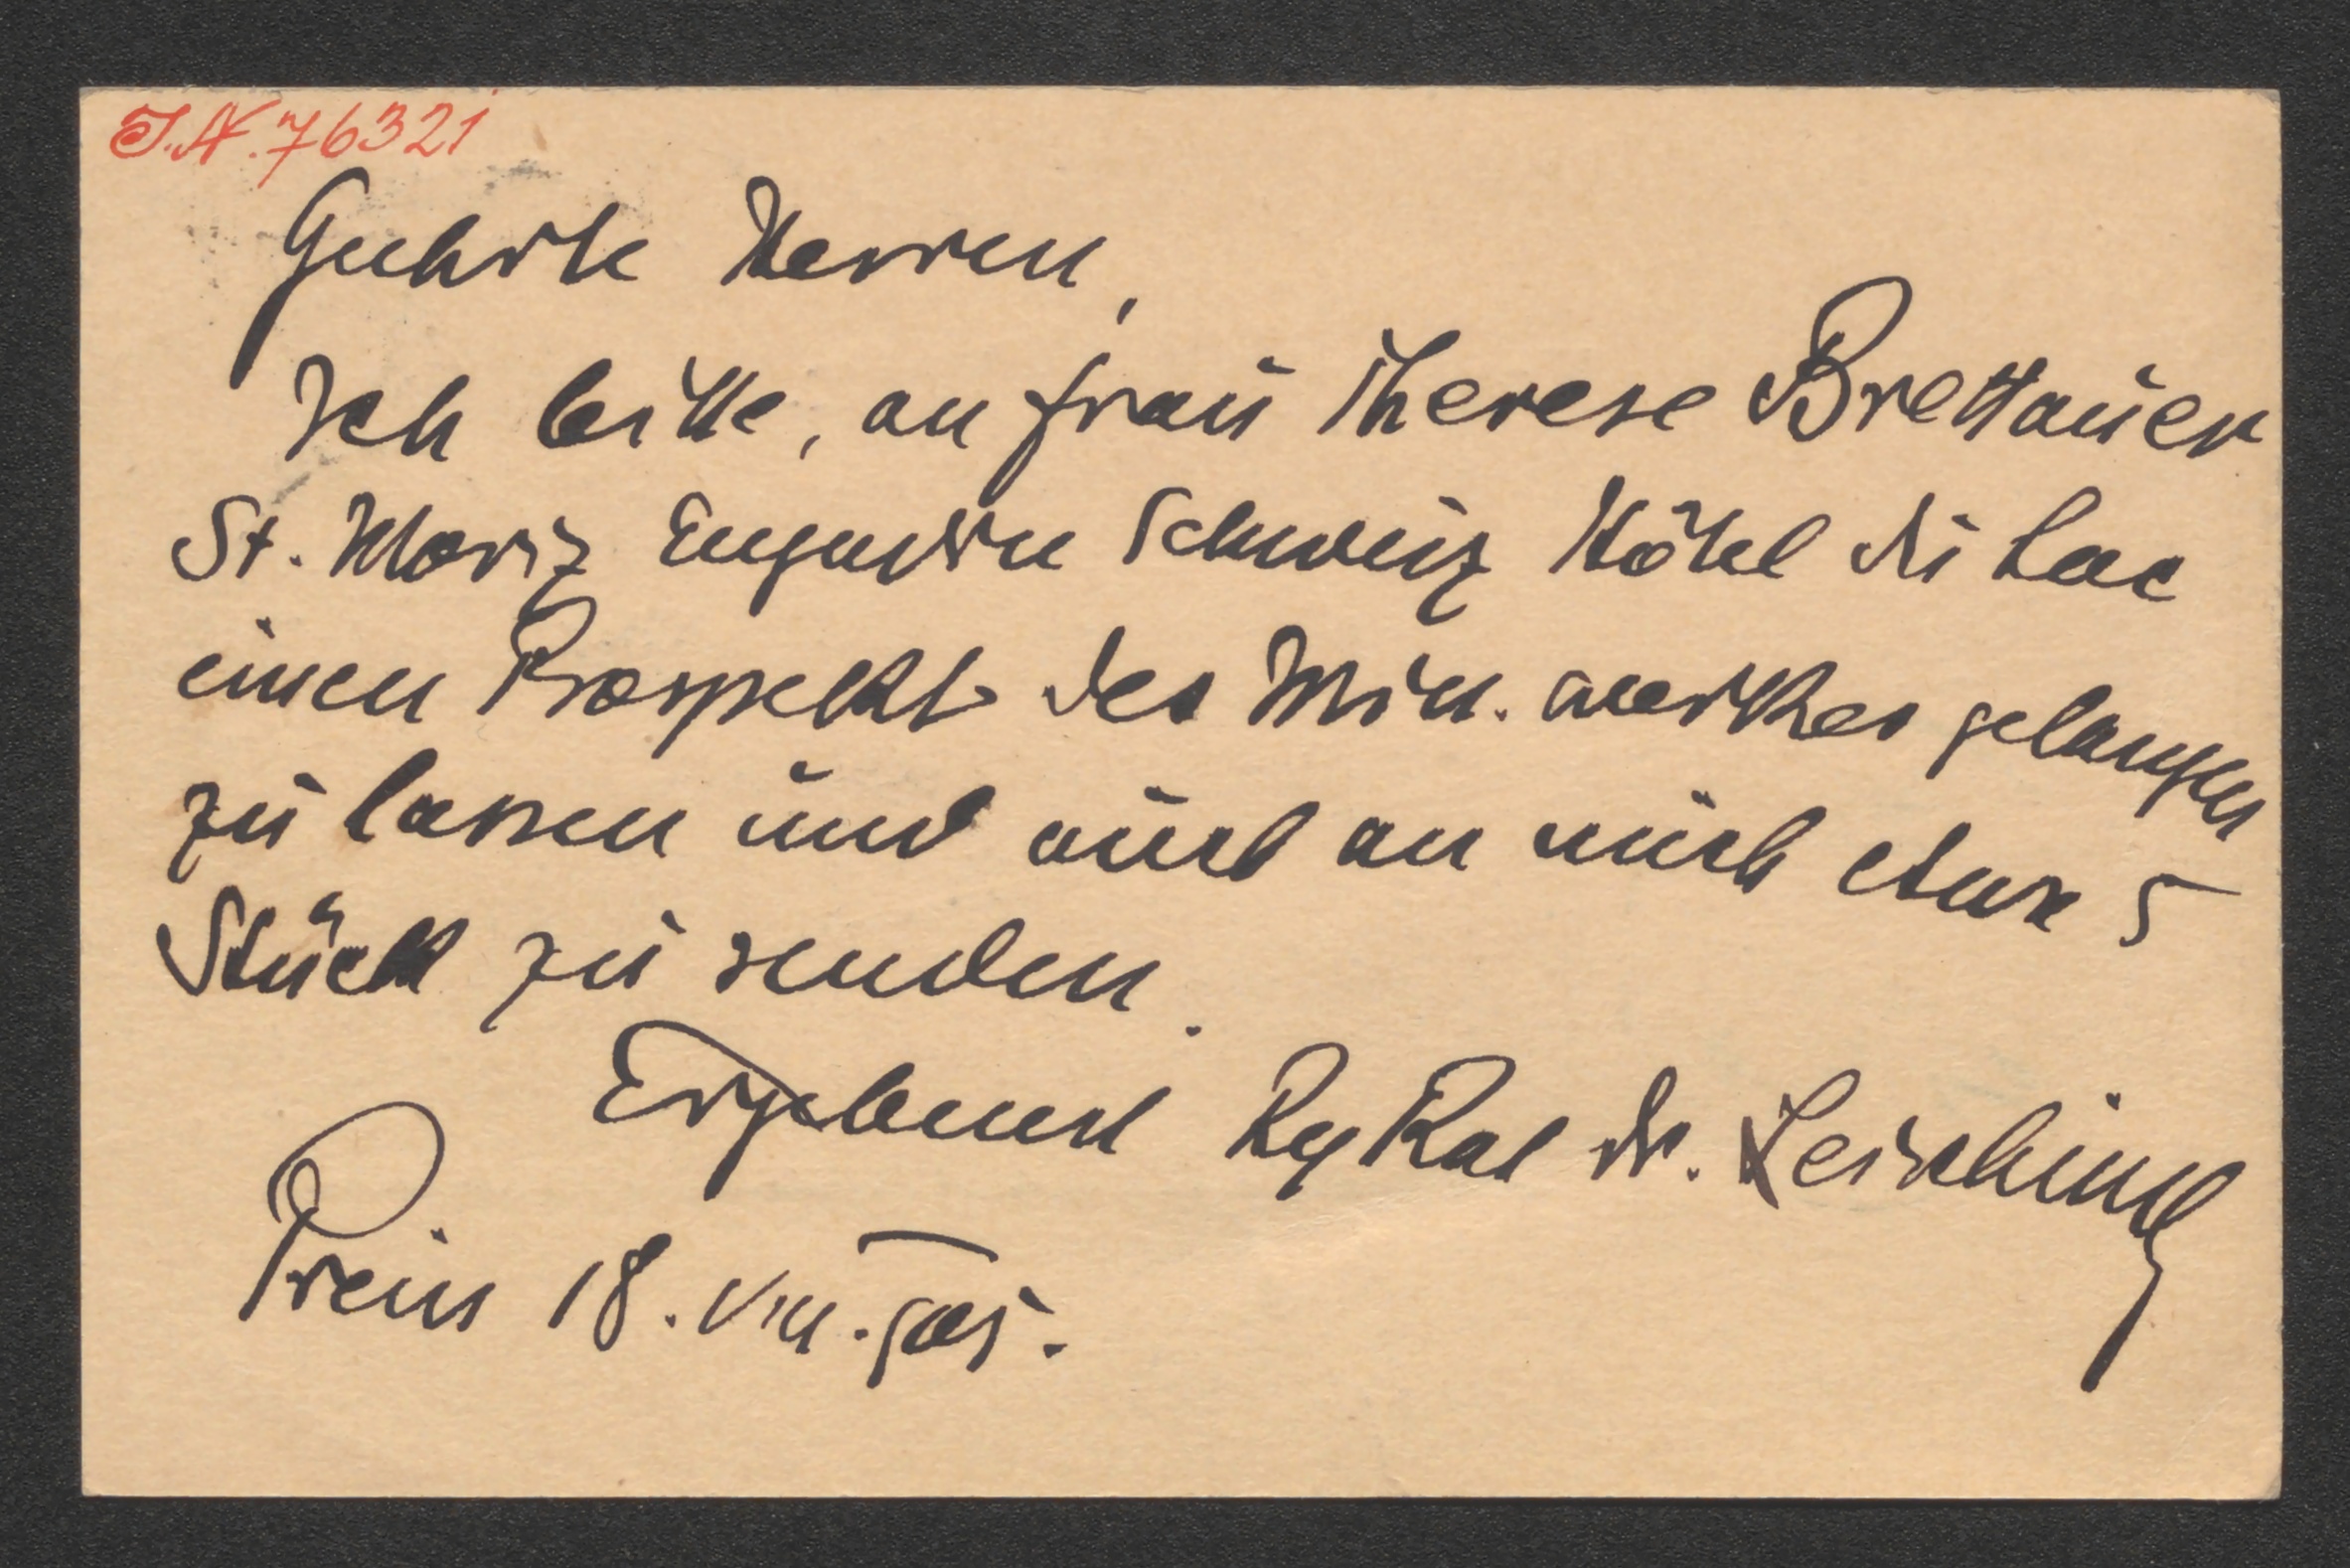 J.N. 76321
Geehrte Herren,
Ich bitte, an Frau Therese Brettauer
St. Moriz Engadin Schweiz Hôtel du Lac
einen Prospekt des Min. werkes gelangen
zu lassen und auch an mich etwa 5
Stück zu senden.
Ergebenst RegRat Dr. Leisching
Prein 18. VIII. 905.